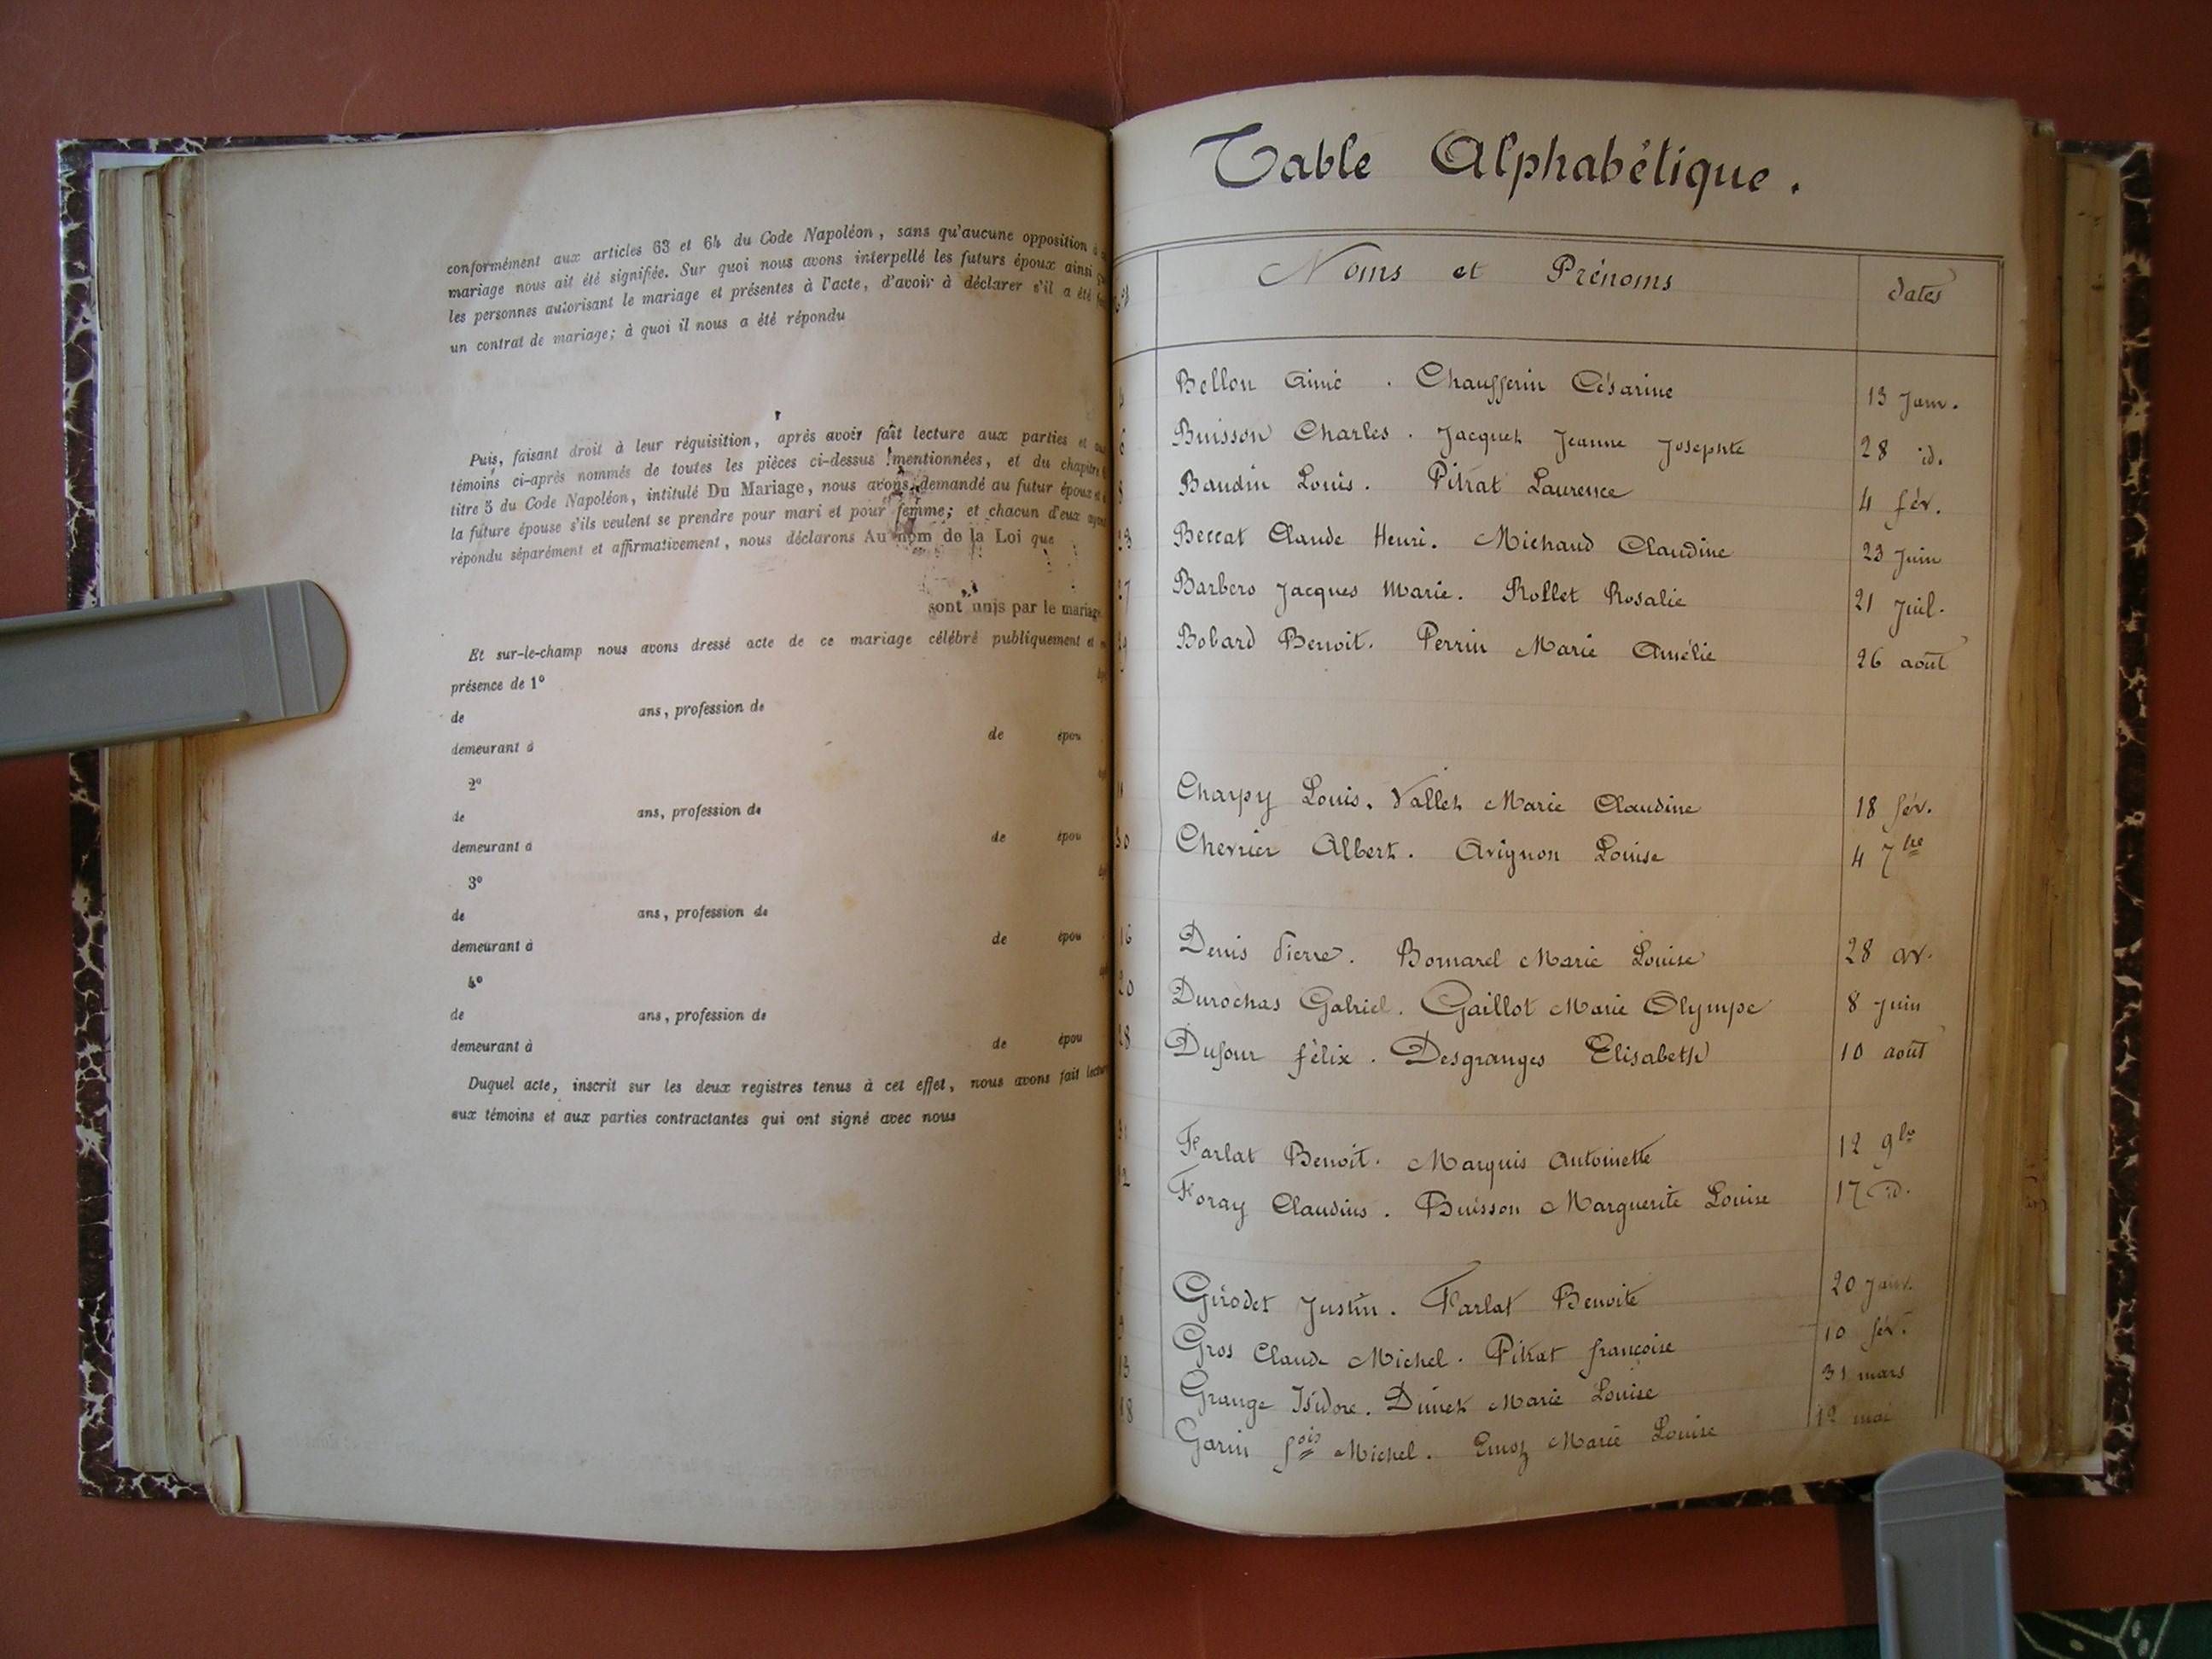 conformément aux articles 63 et 64 du Code Napoléon, sans qu'aucune opposition
mariage nous ait été signifiée. Sur quoi nous avons interpellé les futurs époux ainsi
les personnes autorisant le mariage et présentes à l'acte, d'avoir à déclarer s'il a été
un contrat de mariage; à quoi il nous a été répondu
Puis, faisant droit à leur réquisition, après avoir fait lecture aux parties et
témoins ci-après nommés de toutes les pièces ci-dessus mentionnées, et du chapitre
titre 5 du Code Napoléon, intitulé Du Mariage, nous avons demandé au futur époux et
la future épouse s'ils veulent se prendre pour mari et pour femme; et chacun d'eux
répondu séparément et affirmativement, nous déclarons Au nom de la Loi que
sont unis par le mariage
Et sur-le-champ nous avons dressé acte de ce mariage célébré publiquement et
présence de 1º
de ans, profession de
demeurant à de épou
2º
de ans, profession de
demeurant à de épou
3º
de ans, profession de
demeurant à de épou
4º
de ans, profession de
demeurant à de épou
Duquel acte, inscrit sur les deux registres tenus à cet effet, nous avons fait lecture
aux témoins et aux parties contractantes qui ont signé avec nous
Table Alphabétique.
Noms et Prénoms dates
Bellon Aimé . Chaufferin Césarine 13 Janv.
Buisson Charles . Jacquet Jeanne Josephte 28 id.
Baudin Louis. Pitrat Laurence 4 fév.
Beccat Claude Henri. Michaud Claudine 23 Juin
Barbero Jacques Marie. Rollet Rosalie 21 Juil.
Bobard Benoit. Perrin Marie Amélie 26 août
Charpy Louis. Vallet Marie Claudine 18 fév.
30 Chevrier Albert. Avignon Louise 4 7bre
16 Denis Pierre. Bornarel Marie Louise 28 av.
20 Durochas Gabriel. Gaillot Marie Olympe 8 Juin
28 Dufour félix. Desgranges Elisabeth 10 août
Farlat Benoit. Marquis Antoinette 12 9bre
Foray Claudius. Buisson Marguerite Louise 17 id.
Girodet Justin. Farlat Benoite 20 Janv.
Gros Claude Michel. Pitrat françoise 10 fév.
13 Grange Isidore. Dimet Marie Louise 31 mars
18 Garin fois Michel. Emoz Marie Louise 12 mai